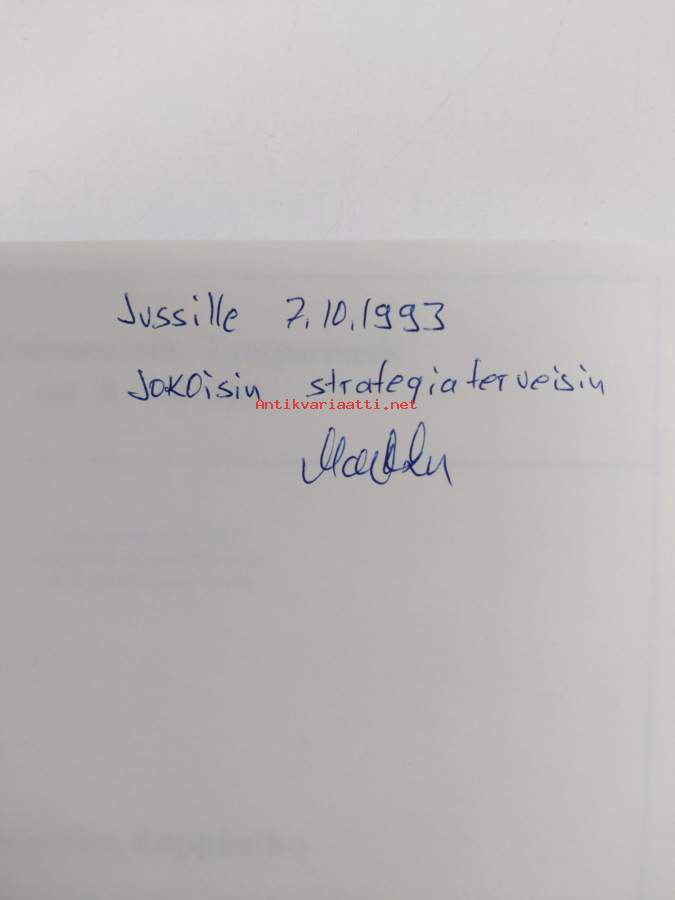 Jussille 7.10.1993
JOKOisin strategiaterveisin
Antikvariaatti.net
Markku